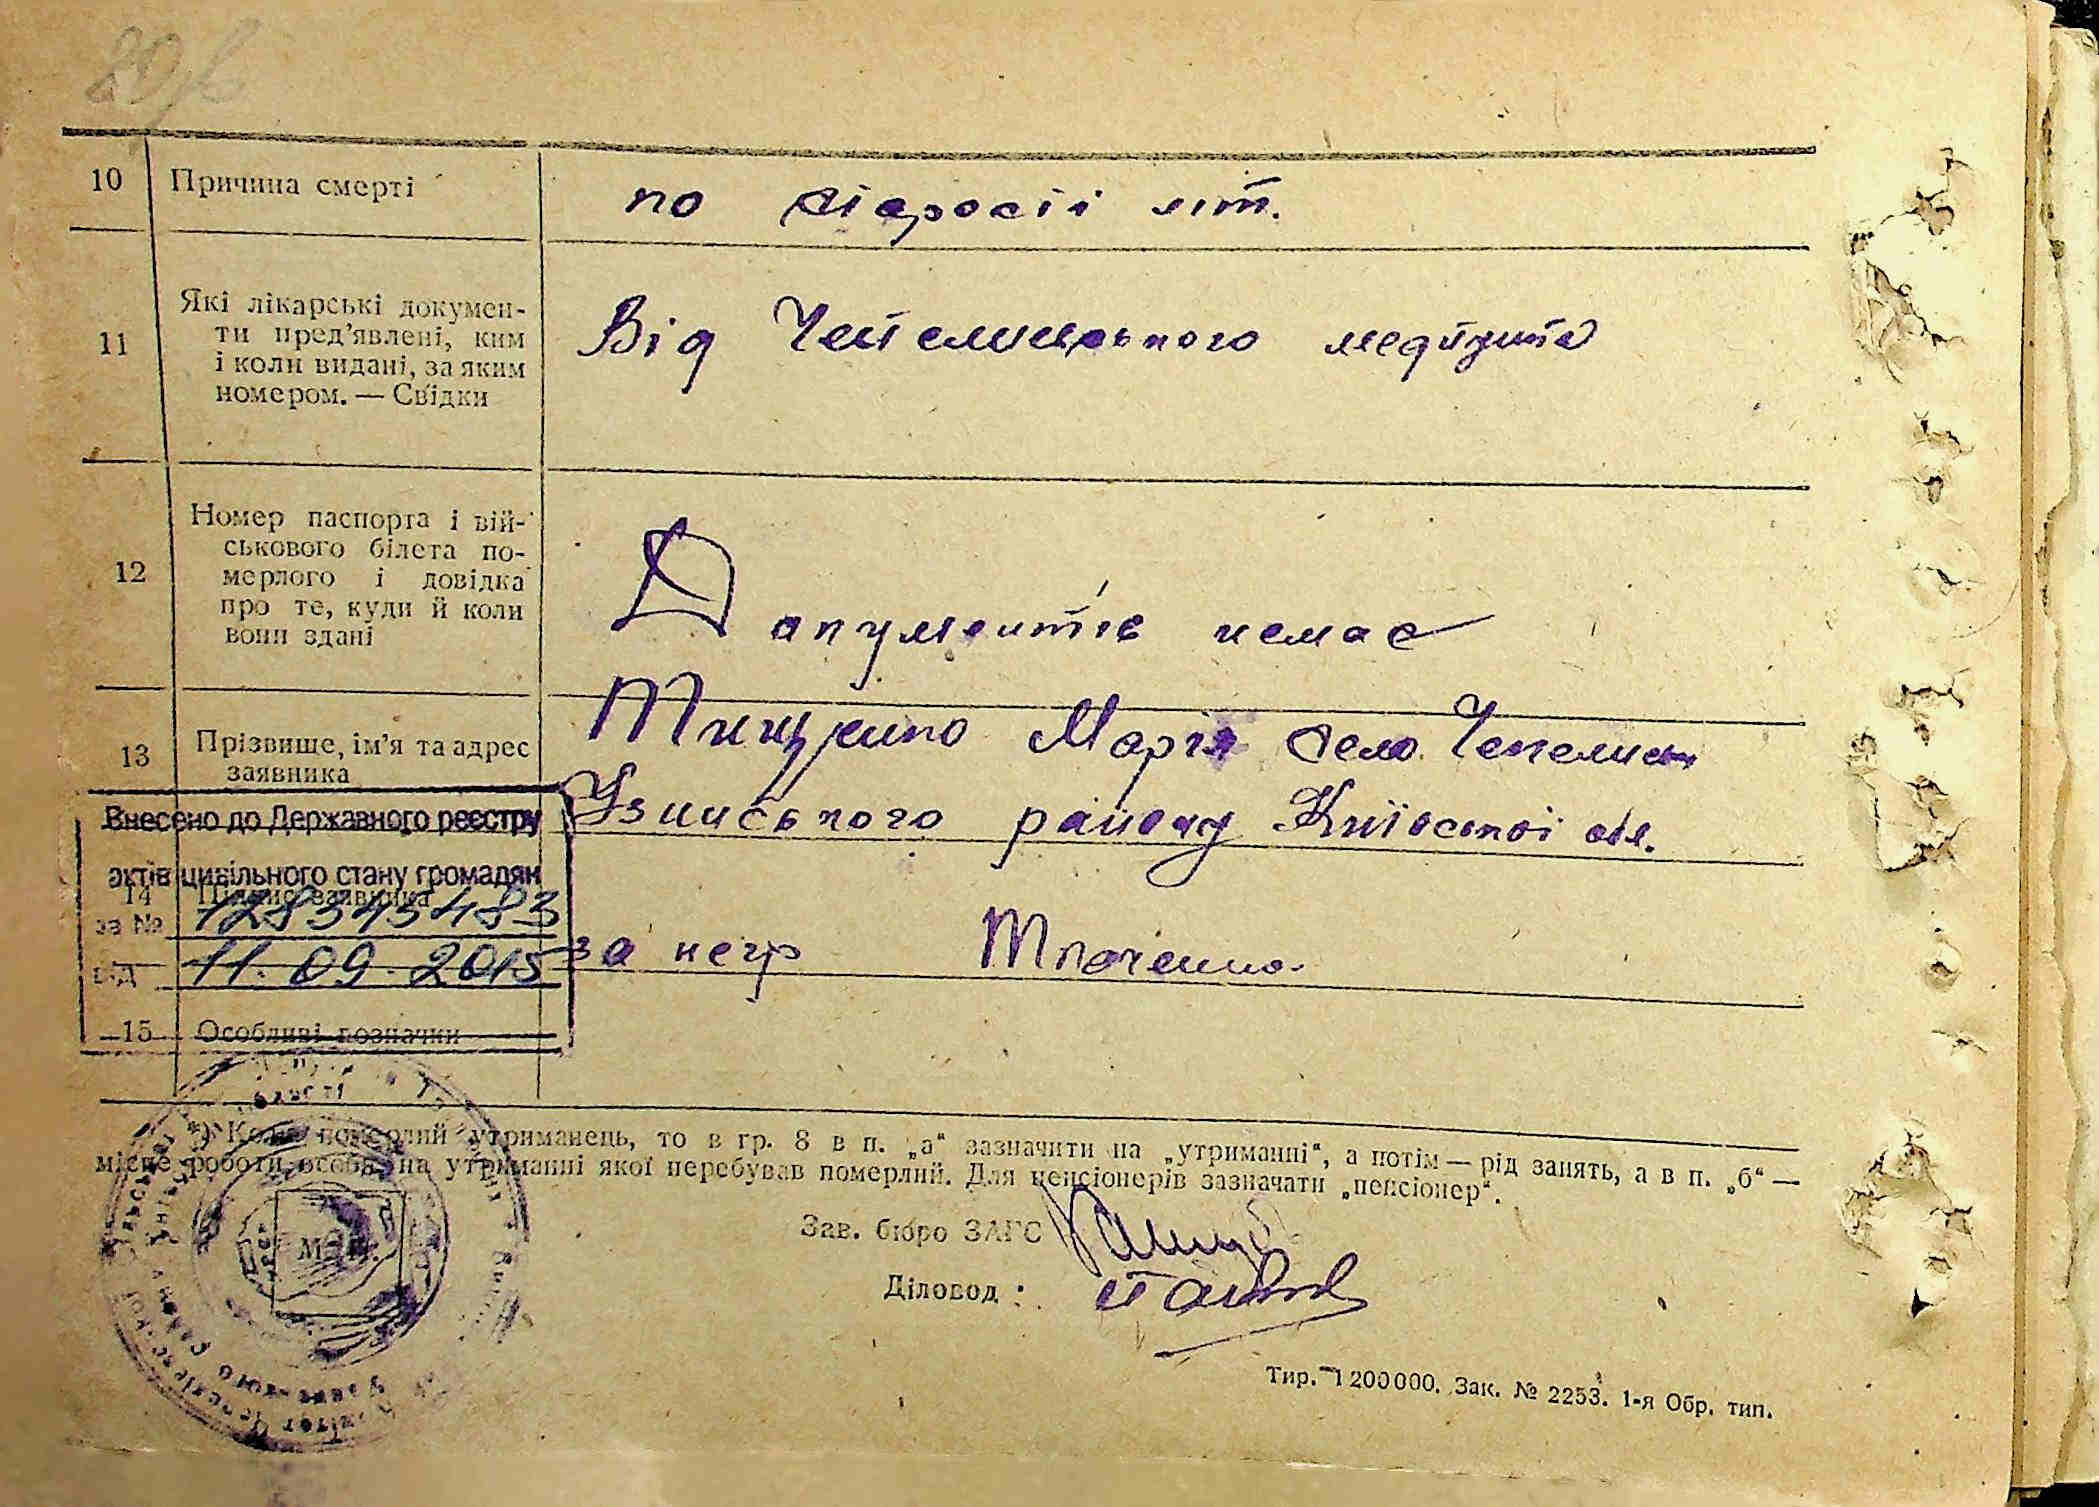 10 Причина смерті по старості літ.
11 Які лікарські докумен-
ти пред’явлені, ким
і коли видані, за яким
номером. — Свідки
Від Чепелицького медпункта
12 Номер паспорта і вій-
ськового білета по-
мерлого і довідка
про те, куди й коли
вони здані
Документів немає
13 Прізвище, ім’я та адрес
заявника
Марія село
Узинського району Київської обл.
Внесено до Державного реєстру
актів цивільного стану громадян
14 Підпис заявника
за № 128345483
від 11.09.2015
за негр Ткаченко.
15 Особливі позначки
*) Коли померлий утриманець, то в гр. 8 в п. „а“ зазначити на „утриманні“, а потім — рід занять, а в п. „б“ —
місце роботи особи, на утриманні якої перебував померлий. Для пенсіонерів зазначати „пенсіонер“.
М. П.
Зав. бюро ЗАГС
Діловод :
Тир. 1 200000. Зак. № 2253. 1-я Обр. тип.